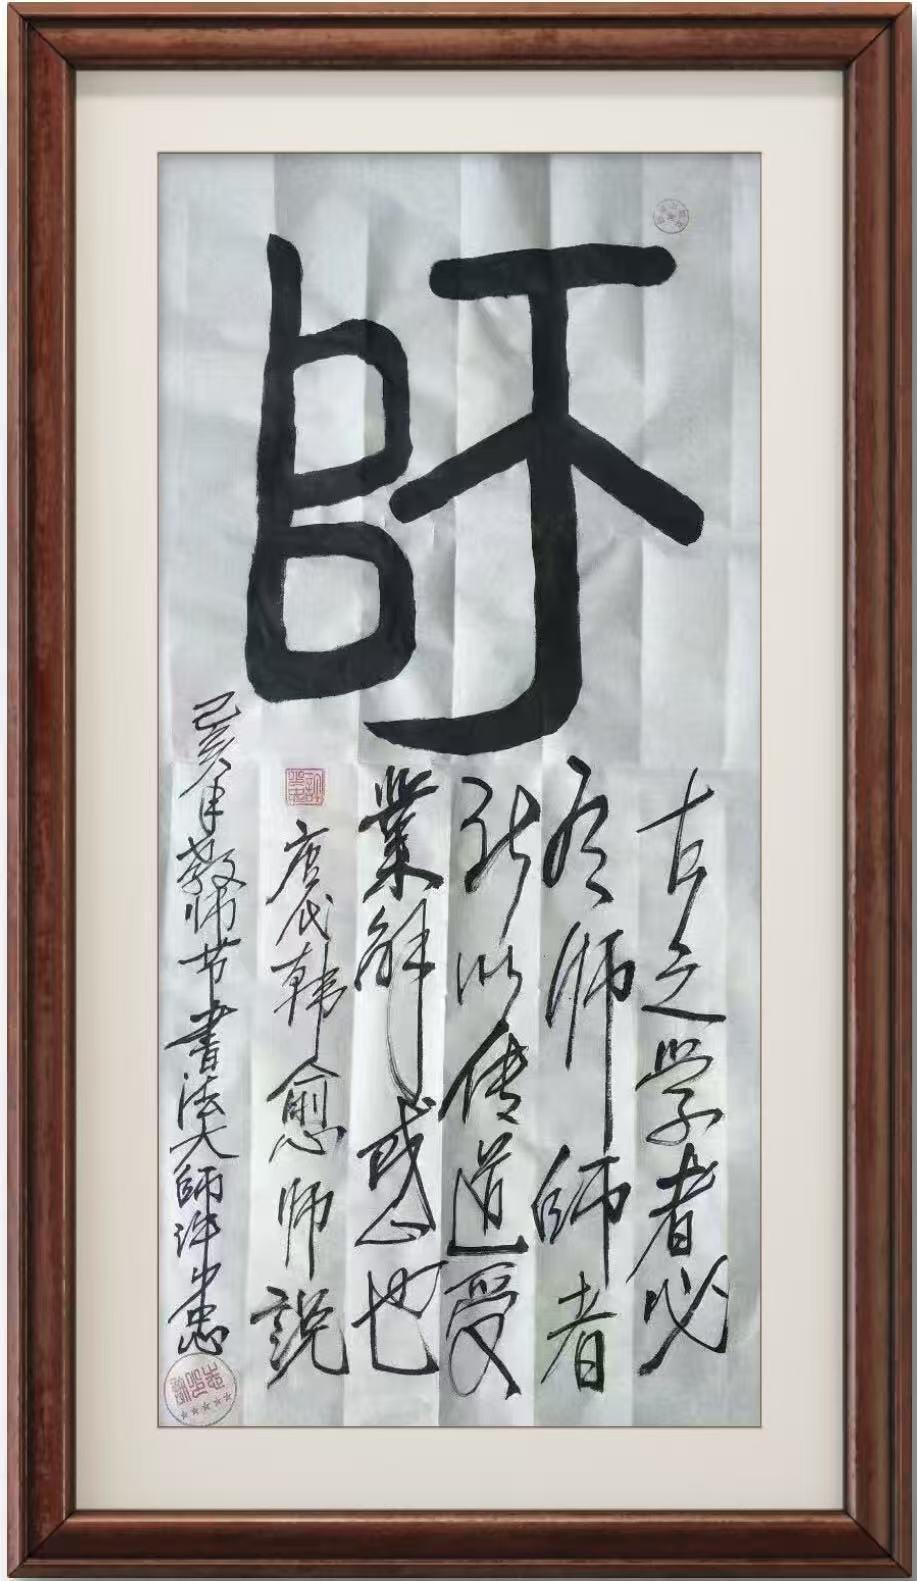 師
古之学者必
有师師者
所以传道受
業解惑也
唐代韩愈师說
己亥年教师节書法大師许忠